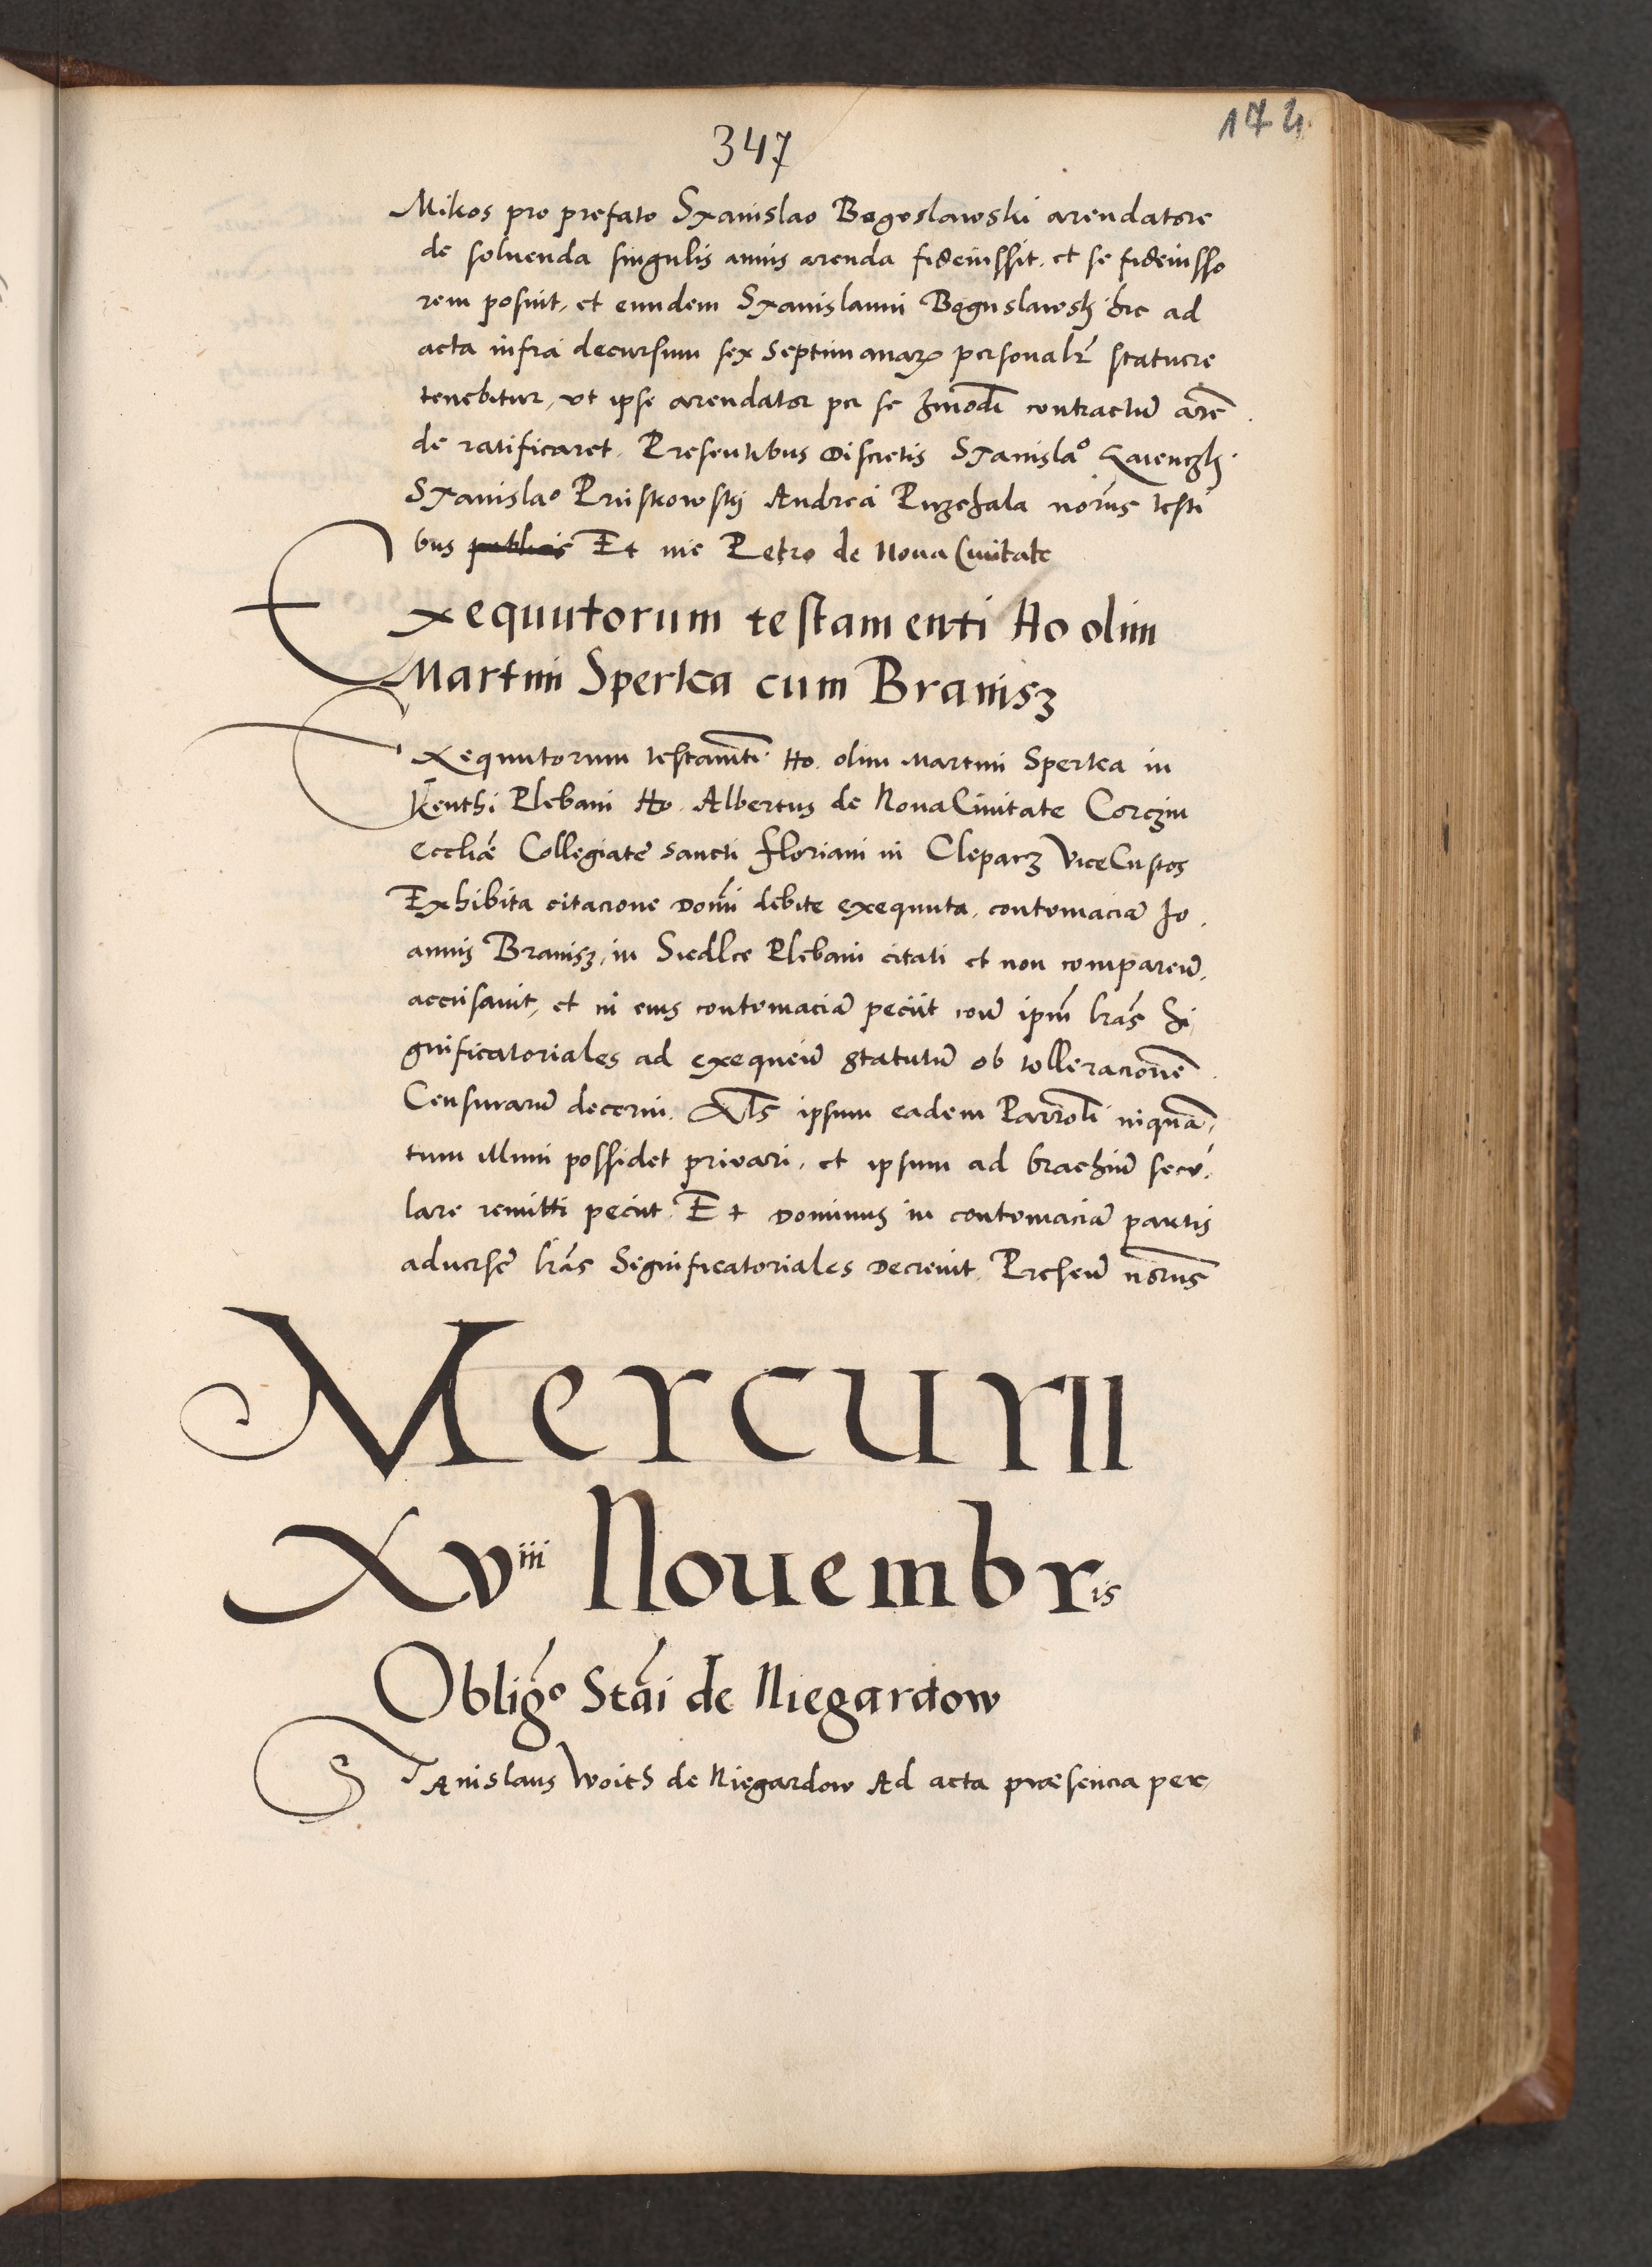 347
174
Mikos pro prefato Stanislao Bogoslawski arendatore
de soluenda singulis annis arenda fideiussit, et se fideiusso
rem posuit, et eundem Stanislaum Boguslawsky hic ad
acta infra decursum sex septimanarꝫ personalr̃ statuere
tenebitur, vt ipse arendator per se hmõdi contractũ arẽ
de ratificaret. Presentibus Discretis Stanislao
Stanislao Pruskowsky Andrea Puzefala norÿs testi
bus publicis Et me Petro de Noua Ciuitate
Exequutorum testamenti Ho olim
Martini Spertea cum Branisz
Exequutorum testamẽti Ho. olim Martini Spertea in
Kenthi Plebani Ho. Albertus de Noua Ciuitate Corczin
ecclie Collegiate Sancti Floriani in Cleparz Vice Custos
Exhibita citacione Domi debite exequuta, contumaciã Jo,
annis Branisz, in Siedlce Plebani citati et non comparen̄,
accusauit, et in eius contumaciã peciit con̄ ipm̄ lrãs Si
gnificatoriales ad exequen̄ statutũ ob tolleracionẽ
Censurarũ decerni. Als ipsum eadem Parroli inquã,
tum illum possidet priuari, et ipsum ad brachiũ secu,
lare remitti peciit. Et Dominus in contumaciã partis
aduerse lrãs Significatoriales Decreuit. Presen̄ norÿs
Mercurii
Xviii Nouembris
Obligo Stai de Niegardow
Stanislaus Woith de Niegardow Ad acta præsencia per,